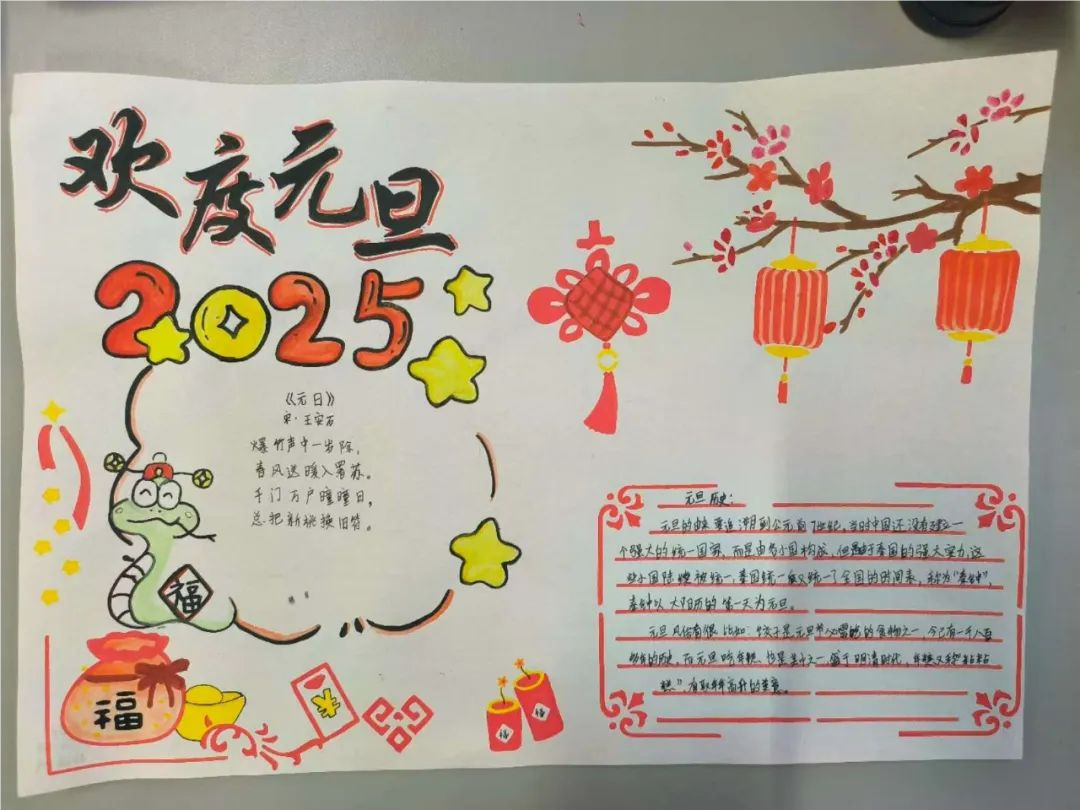 欢度元旦
2025
《元日》
宋·王安石
爆竹声中一岁除,
春风送暖入屠苏。
千门万户曈曈日,
总把新桃换旧符。
福
福
¥
福
福
元旦历史:
元旦的由来要追溯到公元前7世纪,当时中国还没有建立一
个强大的统一国家,而是由多小国构成,但由于秦国的强大实力,这
些小国陆续被统一,秦国统一后又统一了全国的时间表,称为“秦钟”,
秦钟以太阳历的第一天为元旦。
元旦风俗有很 比如:饺子是元旦节必吃的食物之一,今已有一千八百
多年的历史,而元旦吃年糕,也是 之一,盛于明清时代,年糕又称“粘粘
糕”,有取年年高升的意意。